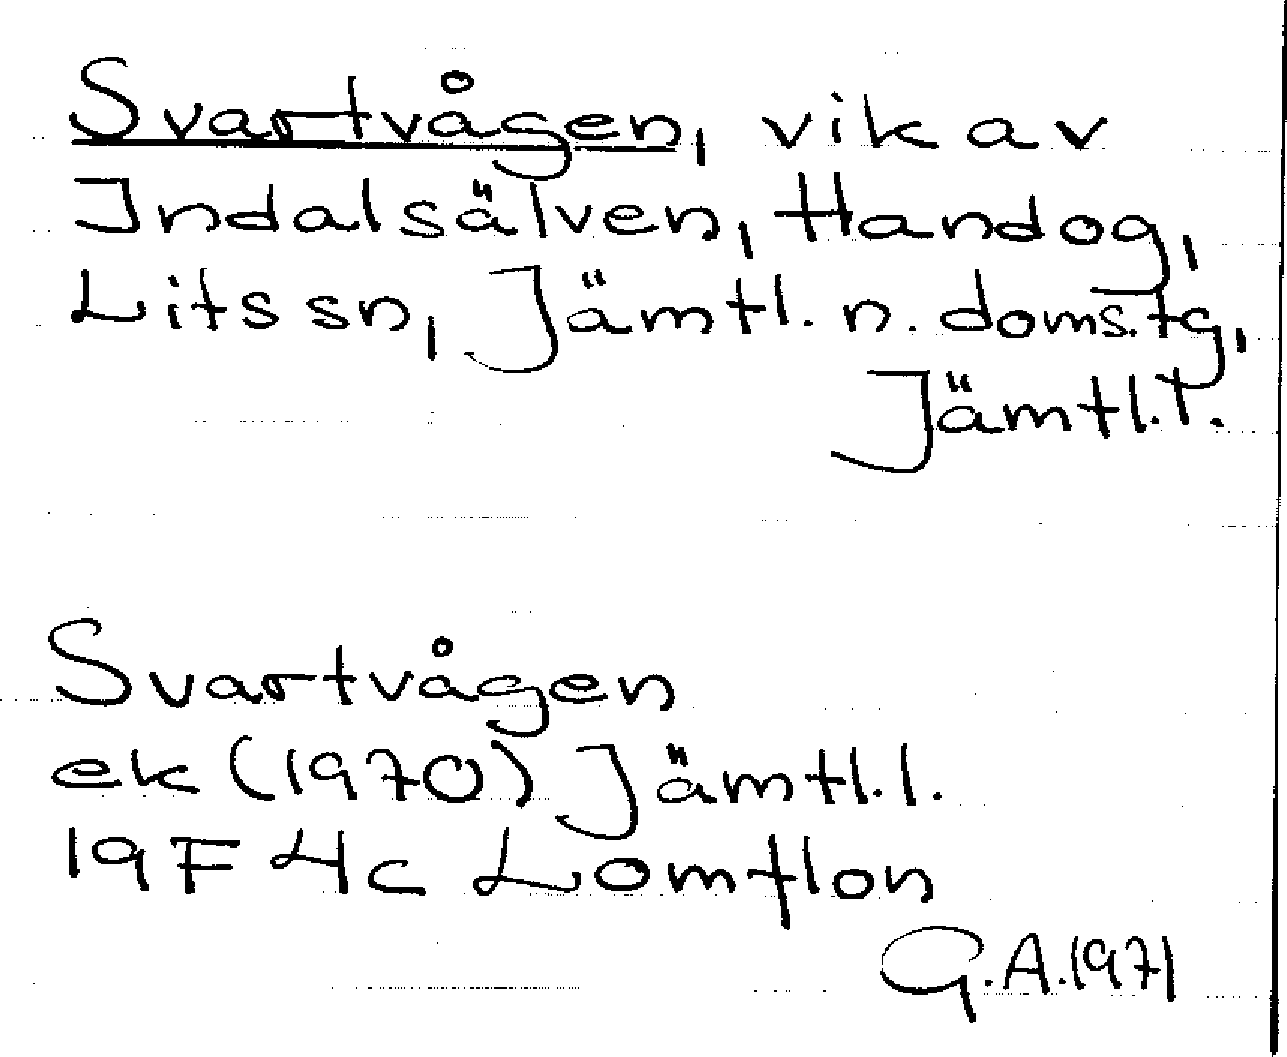 Svartvågen, vik av
Indalsälven, Handog,
Lits sn, Jämtl. n. doms.tg,
Jämtl.l.
Svartvågen
ek (1970) Jämtl.l.
19F 4c Lomflon
G.A.1971